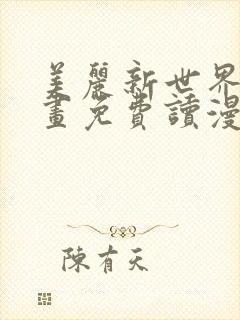 美麗新世界
畫免費讀漫
陳有天